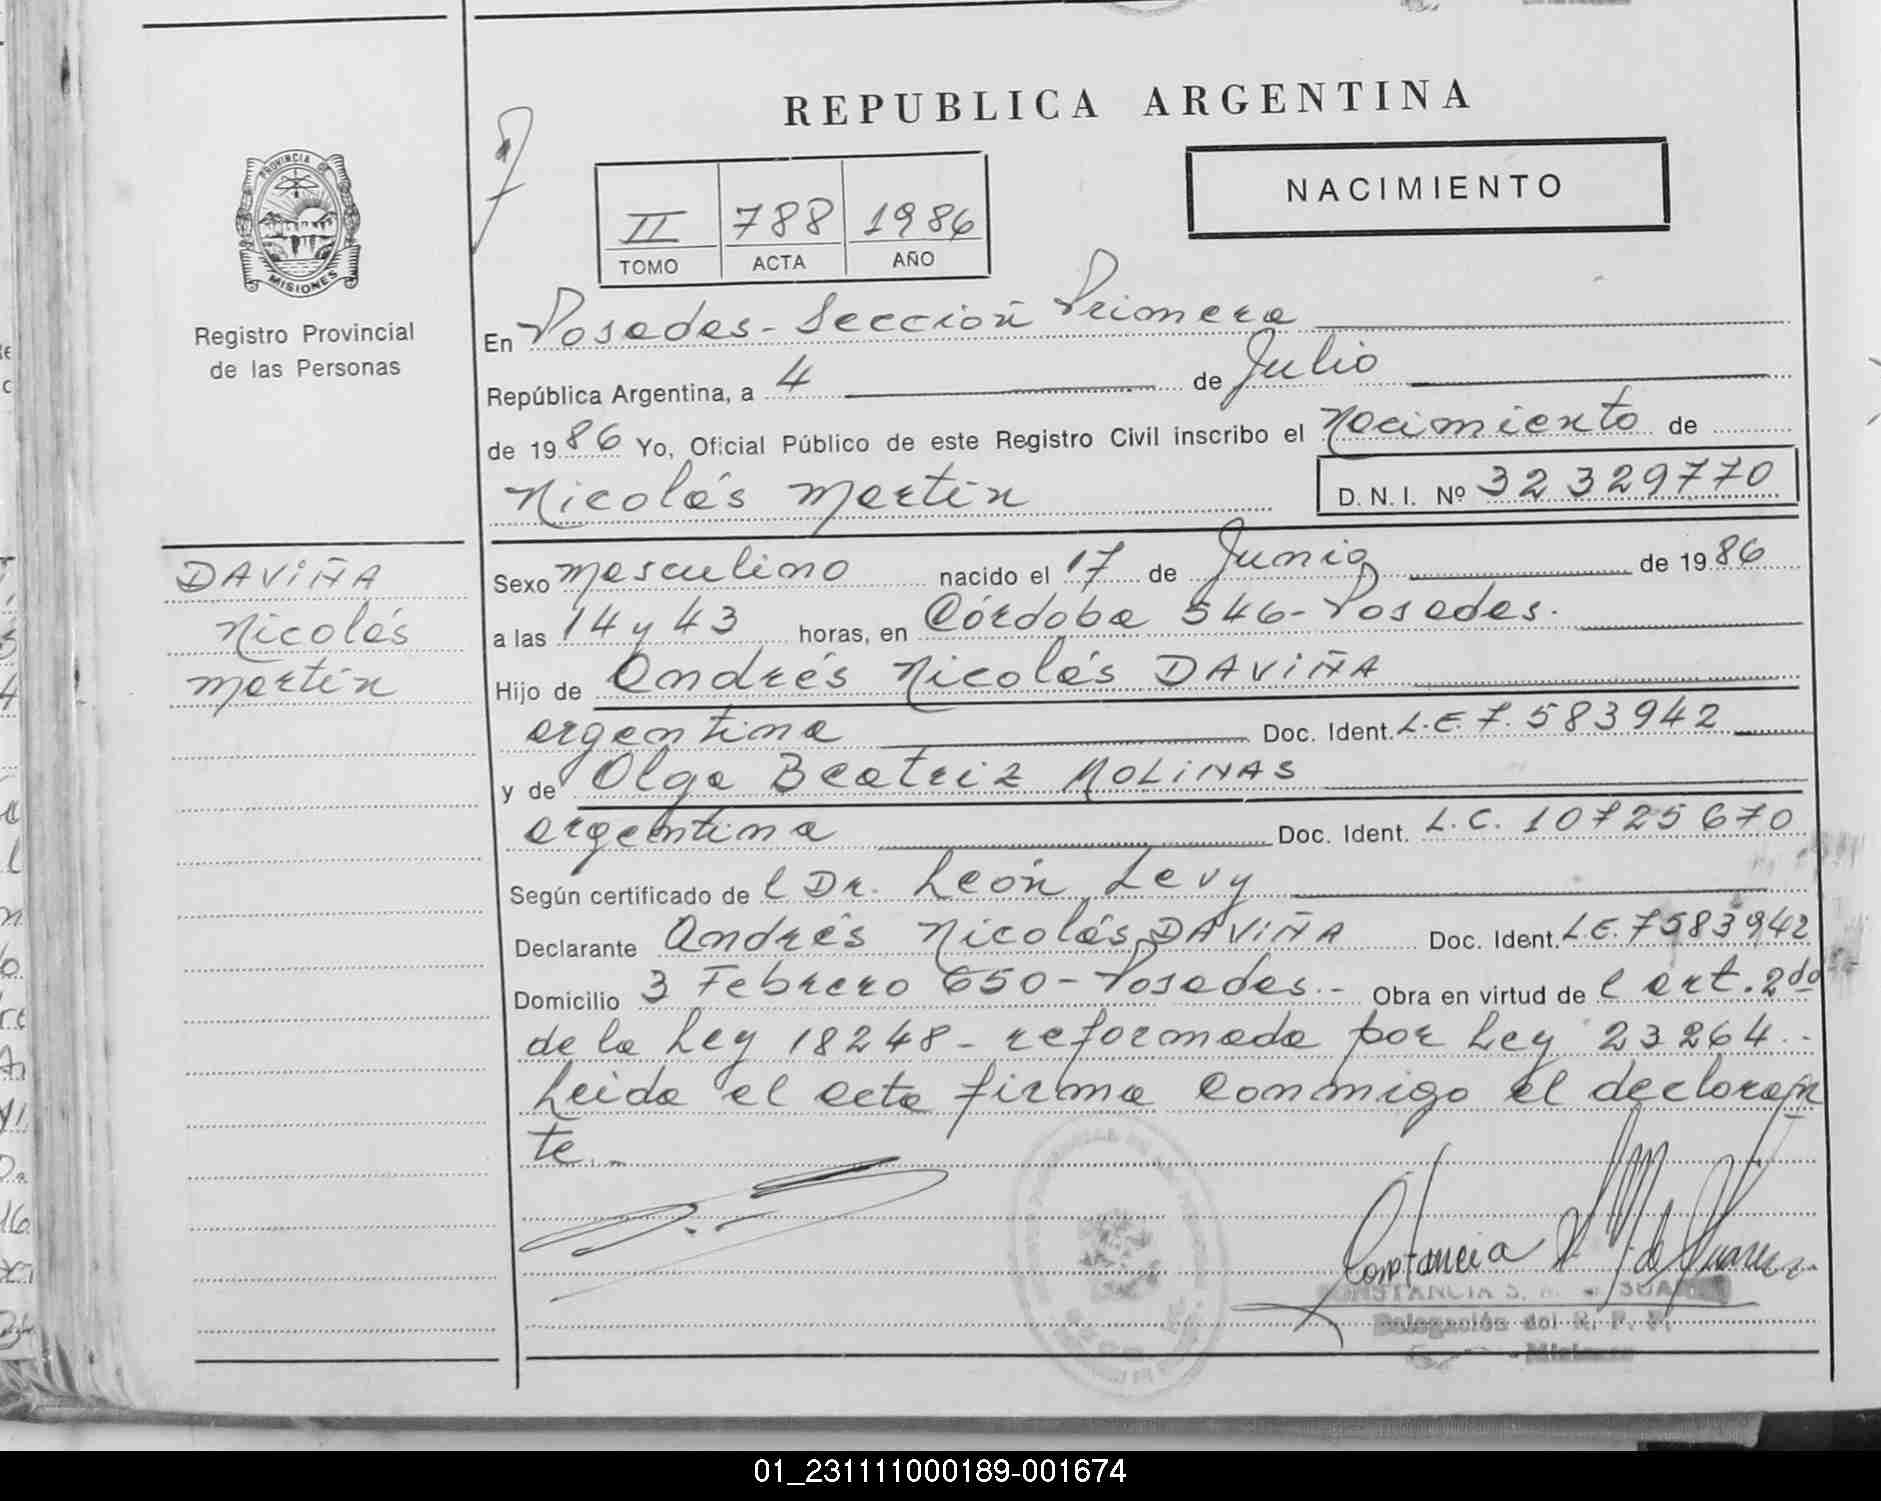 REPUBLICA ARGENTINA
NACIMIENTO
II 788 1986
TOMO ACTA AÑO
PROVINCIA DE
MISIONES
Registro Provincial
de las Personas
En Posadas - Sección Primera
República Argentina, a 4 de Julio
de 1986 Yo, Oficial Público de este Registro Civil inscribo el Nacimiento de
Nicolás Martín D.N.I. Nº 32329770
DAVIÑA
Nicolás
Martín
Sexo masculino nacido el 17 de Junio de 1986
a las 14 y 43 horas, en Córdoba 546 - Posadas.
Hijo de Andrés Nicolás DAVIÑA
argentina Doc. Ident. L.E. 7.583942
y de Olga Beatriz MOLINAS
argentina Doc. Ident. L.C. 10725670
Según certificado de l Dr. León Levy
Declarante Andrés Nicolás DAVIÑA Doc. Ident. L.E. 7583942
Domicilio 3 Febrero 650 - Posadas.- Obra en virtud de l art. 2do
de la Ley 18248 - reformada por Ley 23264.-
Leida el acta firma conmigo el declaran
te.-
Constancia S. M. de Suarez
CONSTANCIA S. M. de SUAREZ
Delegación del R. P. P.
Misiones
01_231111000189-001674